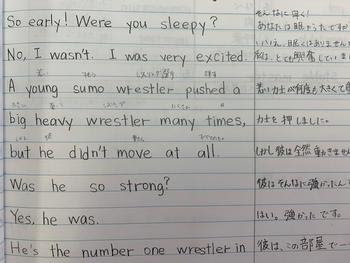 So early! Were you sleepy?
そんなに早く!
あなたは眠かったですか
No, I wasn't. I was very excited.
いいえ、眠くはありません
私は、とても興奮していま
A young sumo wrestler pushed a
若い力士が何度も大きくて重
big heavy wrestler many times,
力士を押しました。
but he didn't move at all.
しかし彼は全然動きません
Was he so strong?
彼はそんなに強かったん
Yes, he was.
はい。強かったです。
He's the number one wrestler in
彼は、この部屋で一